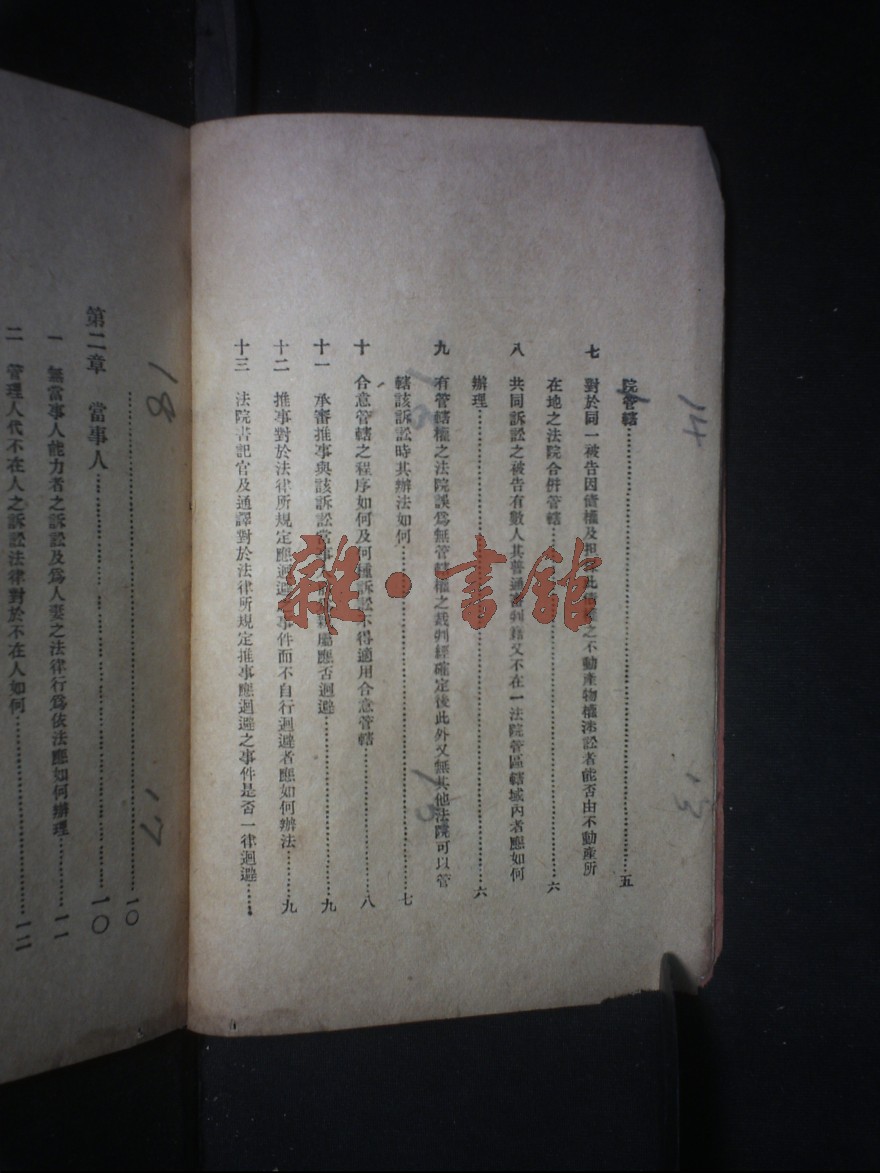 院管轄……五
七 對於同一被告因債權及擔保此債權之不動產物權涉訟者能否由不動產所
在地之法院合併管轄……六
八 共同訴訟之被告有數人其普通審判籍又不在一法院管區轄域內者應如何
辦理……六
九 有管轄權之法院誤爲無管轄權之裁判經確定後此外又無其他法院可以管
轄該訴訟時其辦法如何……七
十 合意管轄之程序如何及何種訴訟不得適用合意管轄……八
十一 承審推事與該訴訟當事人 親屬應否迴避……九
十二 推事對於法律所規定應迴避 事件而不自行迴避者應如何辦法……九
十三 法院書記官及通譯對於法律所規定推事應迴避之事件是否一律迴避……
……一〇
第二章 當事人……一〇
一 無當事人能力者之訴訟及爲人妻之法律行爲依法應如何辦理……一一
二 管理人代不在人之訴訟法律對於不在人如何……一二
雜·書館
14
13
15
18
17